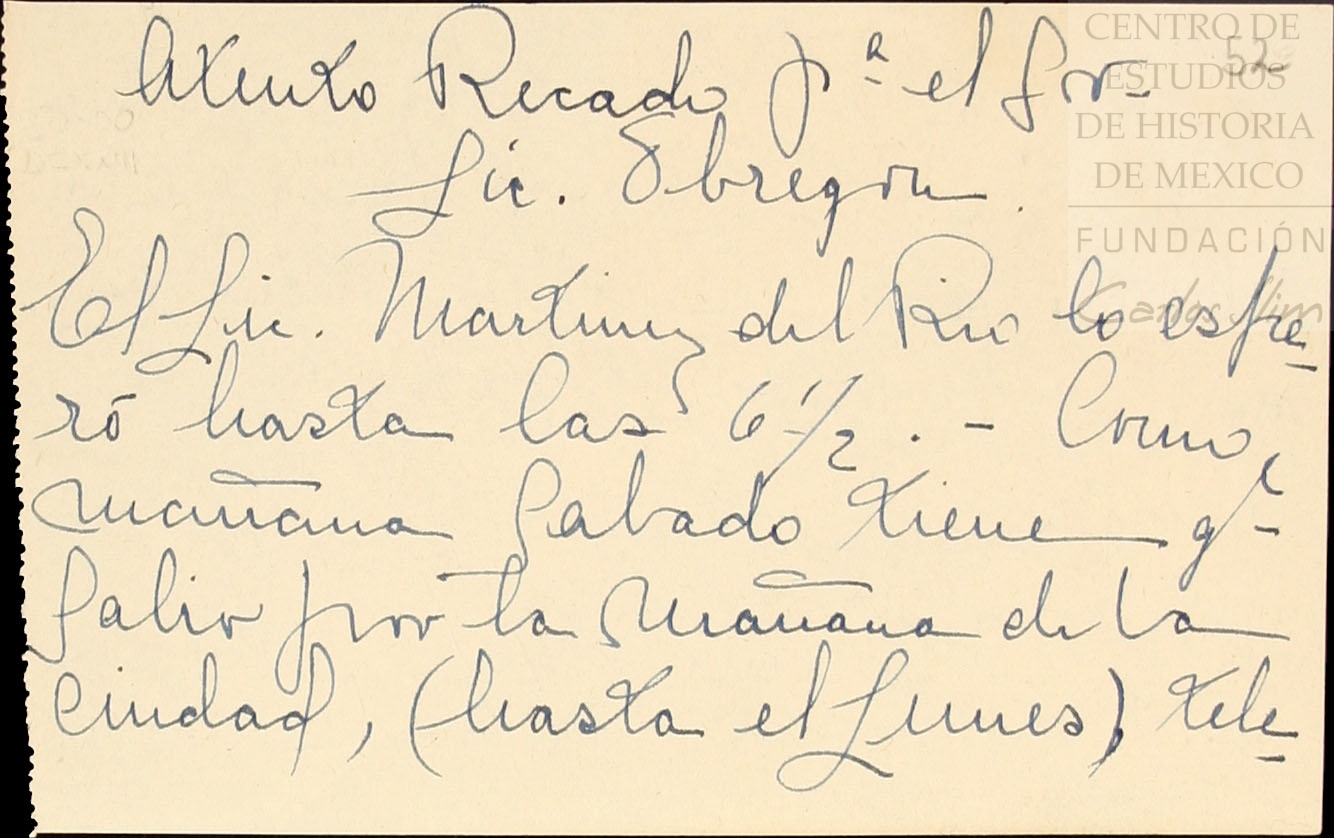 Atento Recado pª el Sr-
Lic. Obregon.
El Lic. Martinez del Rio lo espe-
ró hasta las 6 1/2. - Como,
mañana Sabado tiene q-
Salir por la Mañana de la
Ciudad, (hasta el Lunes) tele-
52
CENTRO DE
ESTUDIOS
DE HISTORIA
DE MEXICO
FUNDACIÓN
Carlos Slim